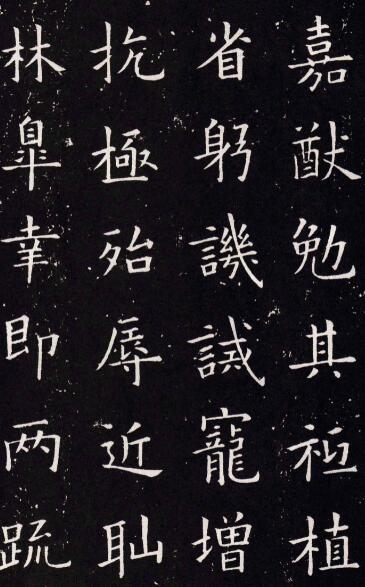 嘉猷勉其祗植
省躬譏誡寵增
抗極殆辱近恥
林皐幸即两疏